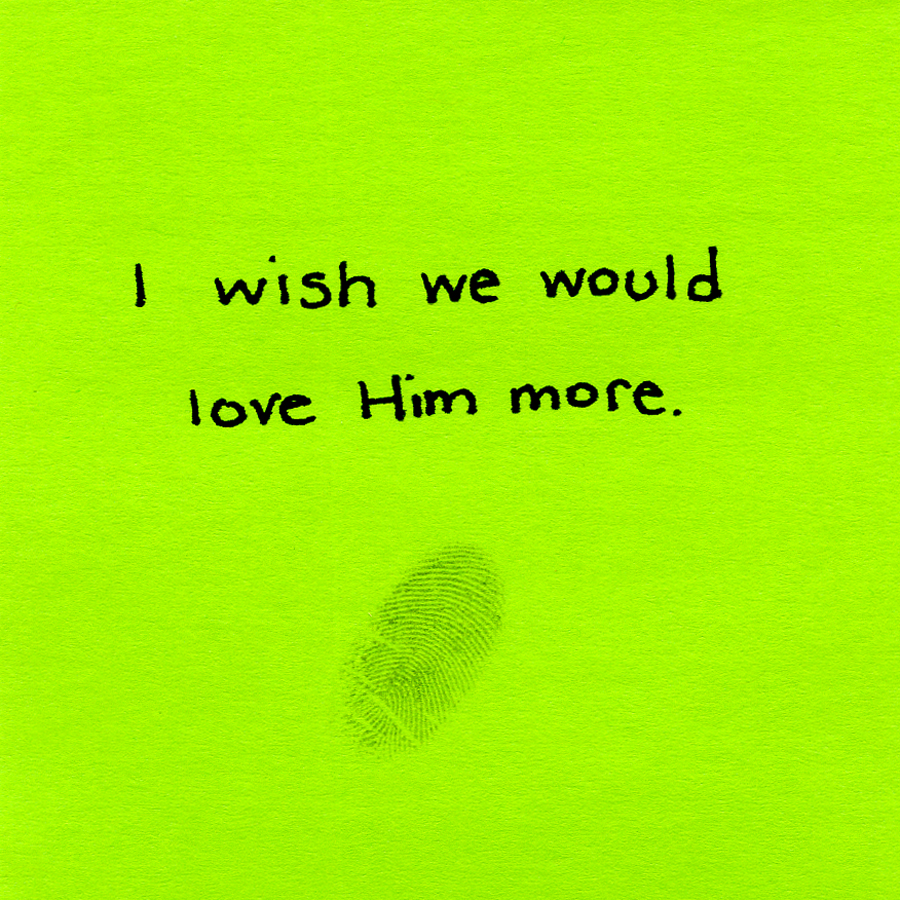 I wish we would
love Him more.